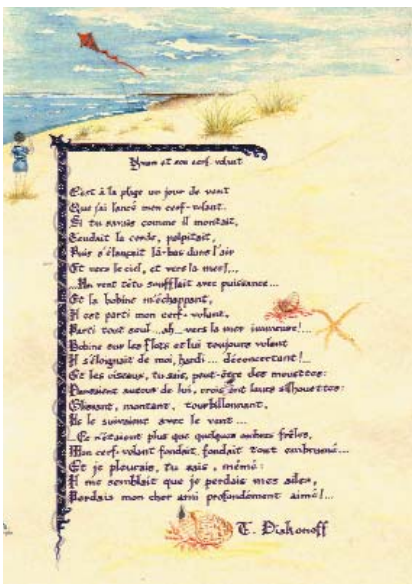 et son cerf-volant
C'est à la plage un jour de vent
Que j'ai lancé mon cerf-volant.
Si tu savais comme il montait,
Tendait la corde, palpitait,
Puis s'élançait là-bas dans l'air
Et vers le ciel, et vers la mer!...
...Un vent têtu soufflait avec puissance...
Et la bobine m'échappant,
Il est parti mon cerf-volant,
Parti tout seul...ah...vers la mer immense!...
Bobine sur les flots et lui toujours volant
Il s'éloignait de moi, hardi... déconcertant!...
Et les oiseaux, tu sais, peut-être des mouettes:
autour de lui, leurs silhouettes:
Glissant, montant, tourbillonnant,
Ils le suivaient avec le vent...
...Ce n'étaient plus que quelques ombres frêles,
Mon cerf-volant fondait, fondait tout embrumé...
Et je pleurais, tu sais, même:
Il me semblait que je perdais mes ailes,
Perdais mon cher ami profondément aimé!...
T. Diakonoff